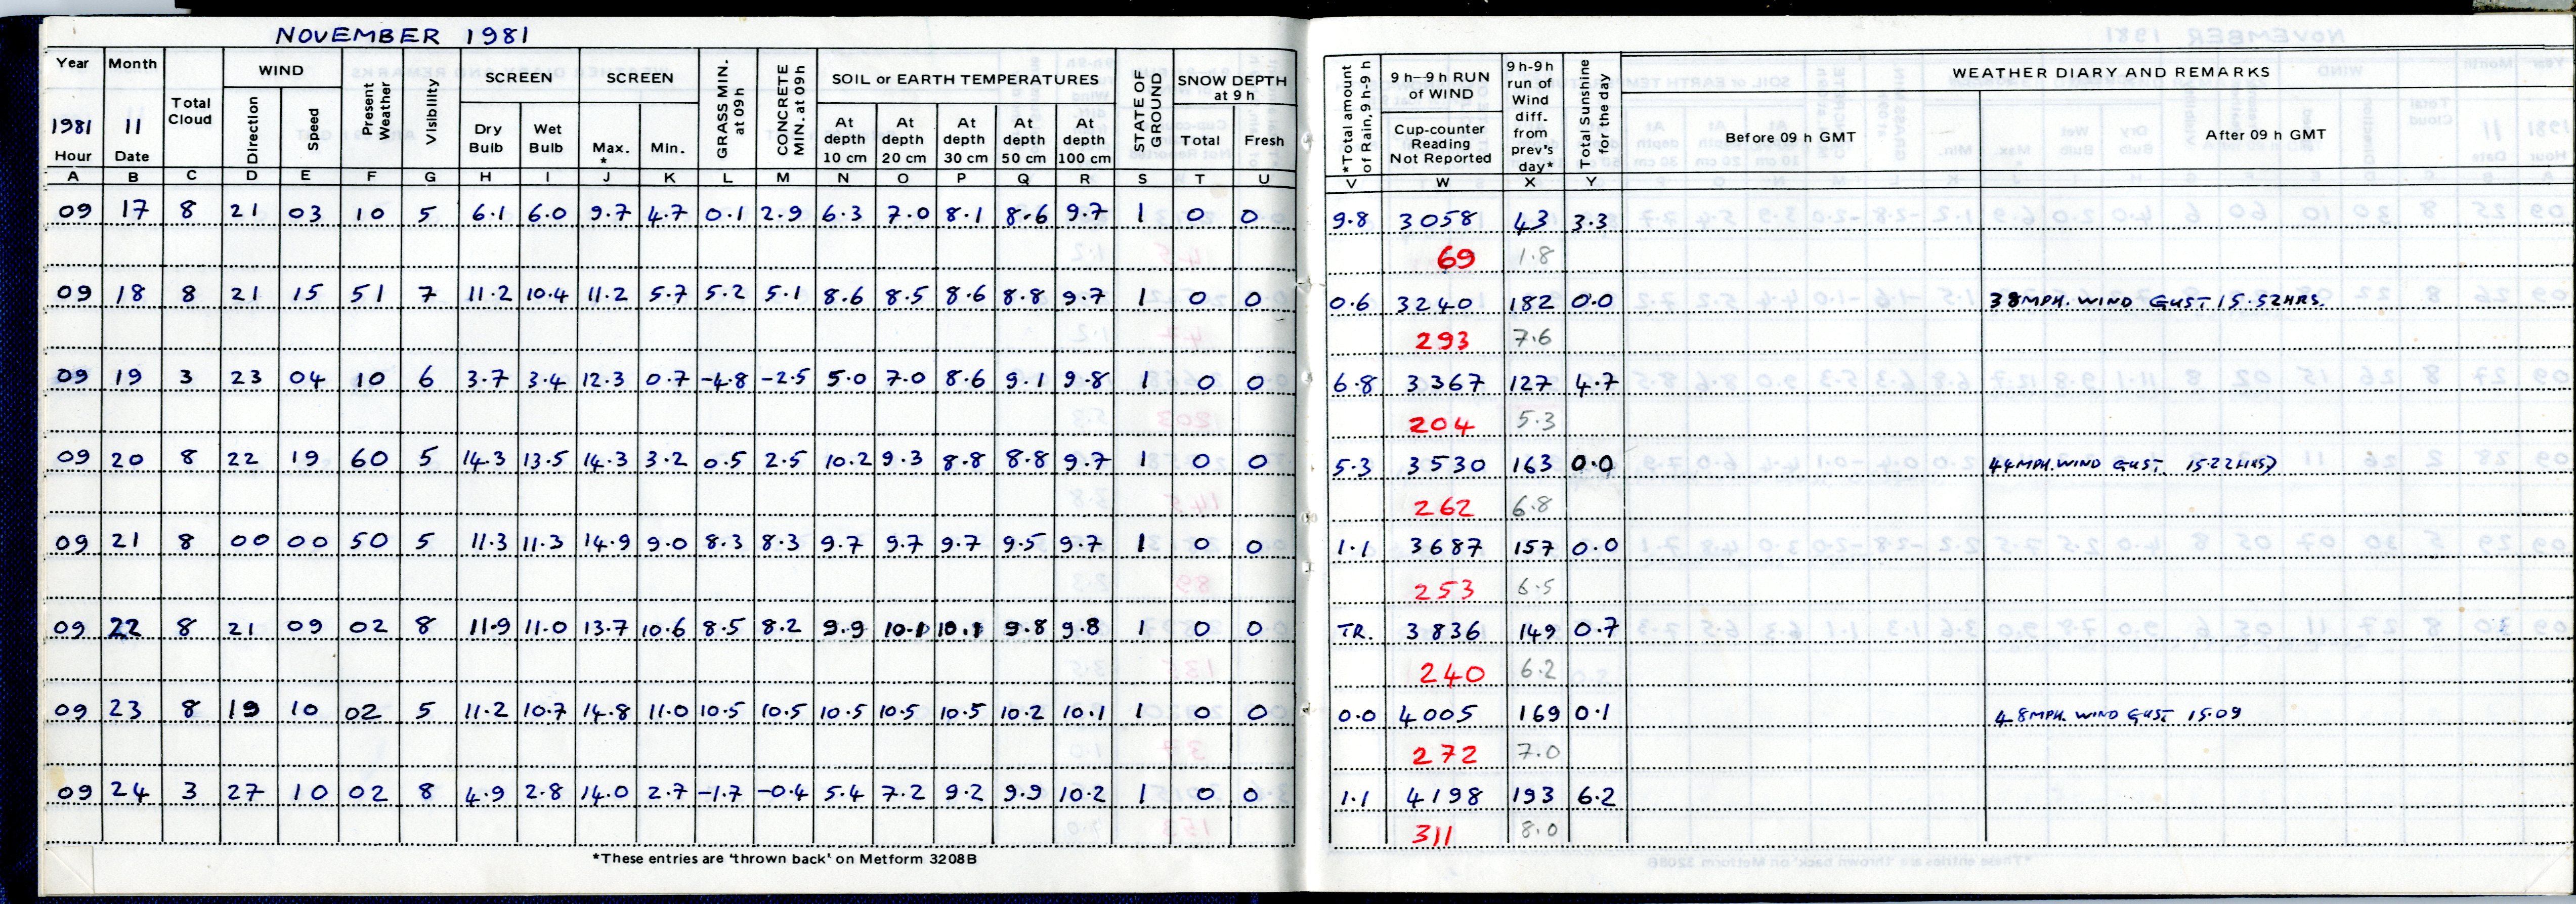 NOVEMBER 1981
Year Month Total Cloud WIND Present Weather Visibility SCREEN SCREEN GRASS MIN. at 09h CONCRETE MIN. at 09h SOIL or EARTH TEMPERATURES STATE OF GROUND SNOW DEPTH at 9h *Total amount of Rain, 9h-9h 9h-9h RUN OF WIND 9h-9h run of Wind diff. from prev's day* Total Sunshine for the day WEATHER DIARY AND REMARKS
1981 11 Direction Speed Dry Bulb Wet Bulb Max. * Min. At depth 10 cm At depth 20 cm At depth 30 cm At depth 50 cm At depth 100 cm Total Fresh Cup-counter Reading Not Reported Before 09 h GMT After 09 h GMT
Hour Date
A B C D E F G H I J K L M N O P Q R S T U V W X Y
09 17 8 21 03 10 5 6.1 6.0 9.7 4.7 0.1 2.9 6.3 7.0 8.1 8.6 9.7 1 0 0 9.8 3058 43 3.3
69 1.8
09 18 8 21 15 51 7 11.2 10.4 11.2 5.7 5.2 5.1 8.6 8.5 8.6 8.8 9.7 1 0 0 0.6 3240 182 0.0 38MPH. WIND GUST 15.52HRS.
293 7.6
09 19 3 23 04 10 6 3.7 3.4 12.3 0.7 -4.8 -2.5 5.0 7.0 8.6 9.1 9.8 1 0 0 6.8 3367 127 4.7
204 5.3
09 20 8 22 19 60 5 14.3 13.5 14.3 3.2 0.5 2.5 10.2 9.3 8.8 8.8 9.7 1 0 0 5.3 3530 163 0.0 44MPH. WIND GUST 15.22HRS
262 6.8
09 21 8 00 00 50 5 11.3 11.3 14.9 9.0 8.3 8.3 9.7 9.7 9.7 9.5 9.7 1 0 0 1.1 3687 157 0.0
253 6.5
09 22 8 21 09 02 8 11.9 11.0 13.7 10.6 8.5 8.2 9.9 10.1 10.1 9.8 9.8 1 0 0 TR. 3836 149 0.7
240 6.2
09 23 8 19 10 02 5 11.2 10.7 14.8 11.0 10.5 10.5 10.5 10.5 10.5 10.2 10.1 1 0 0 0.0 4005 169 0.1 48MPH. WIND GUST 15.09
272 7.0
09 24 3 27 10 02 8 4.9 2.8 14.0 2.7 -1.7 -0.4 5.4 7.2 9.2 9.9 10.2 1 0 0 1.1 4198 193 6.2
311 8.0
*These entries are 'thrown back' on Metform 3208B